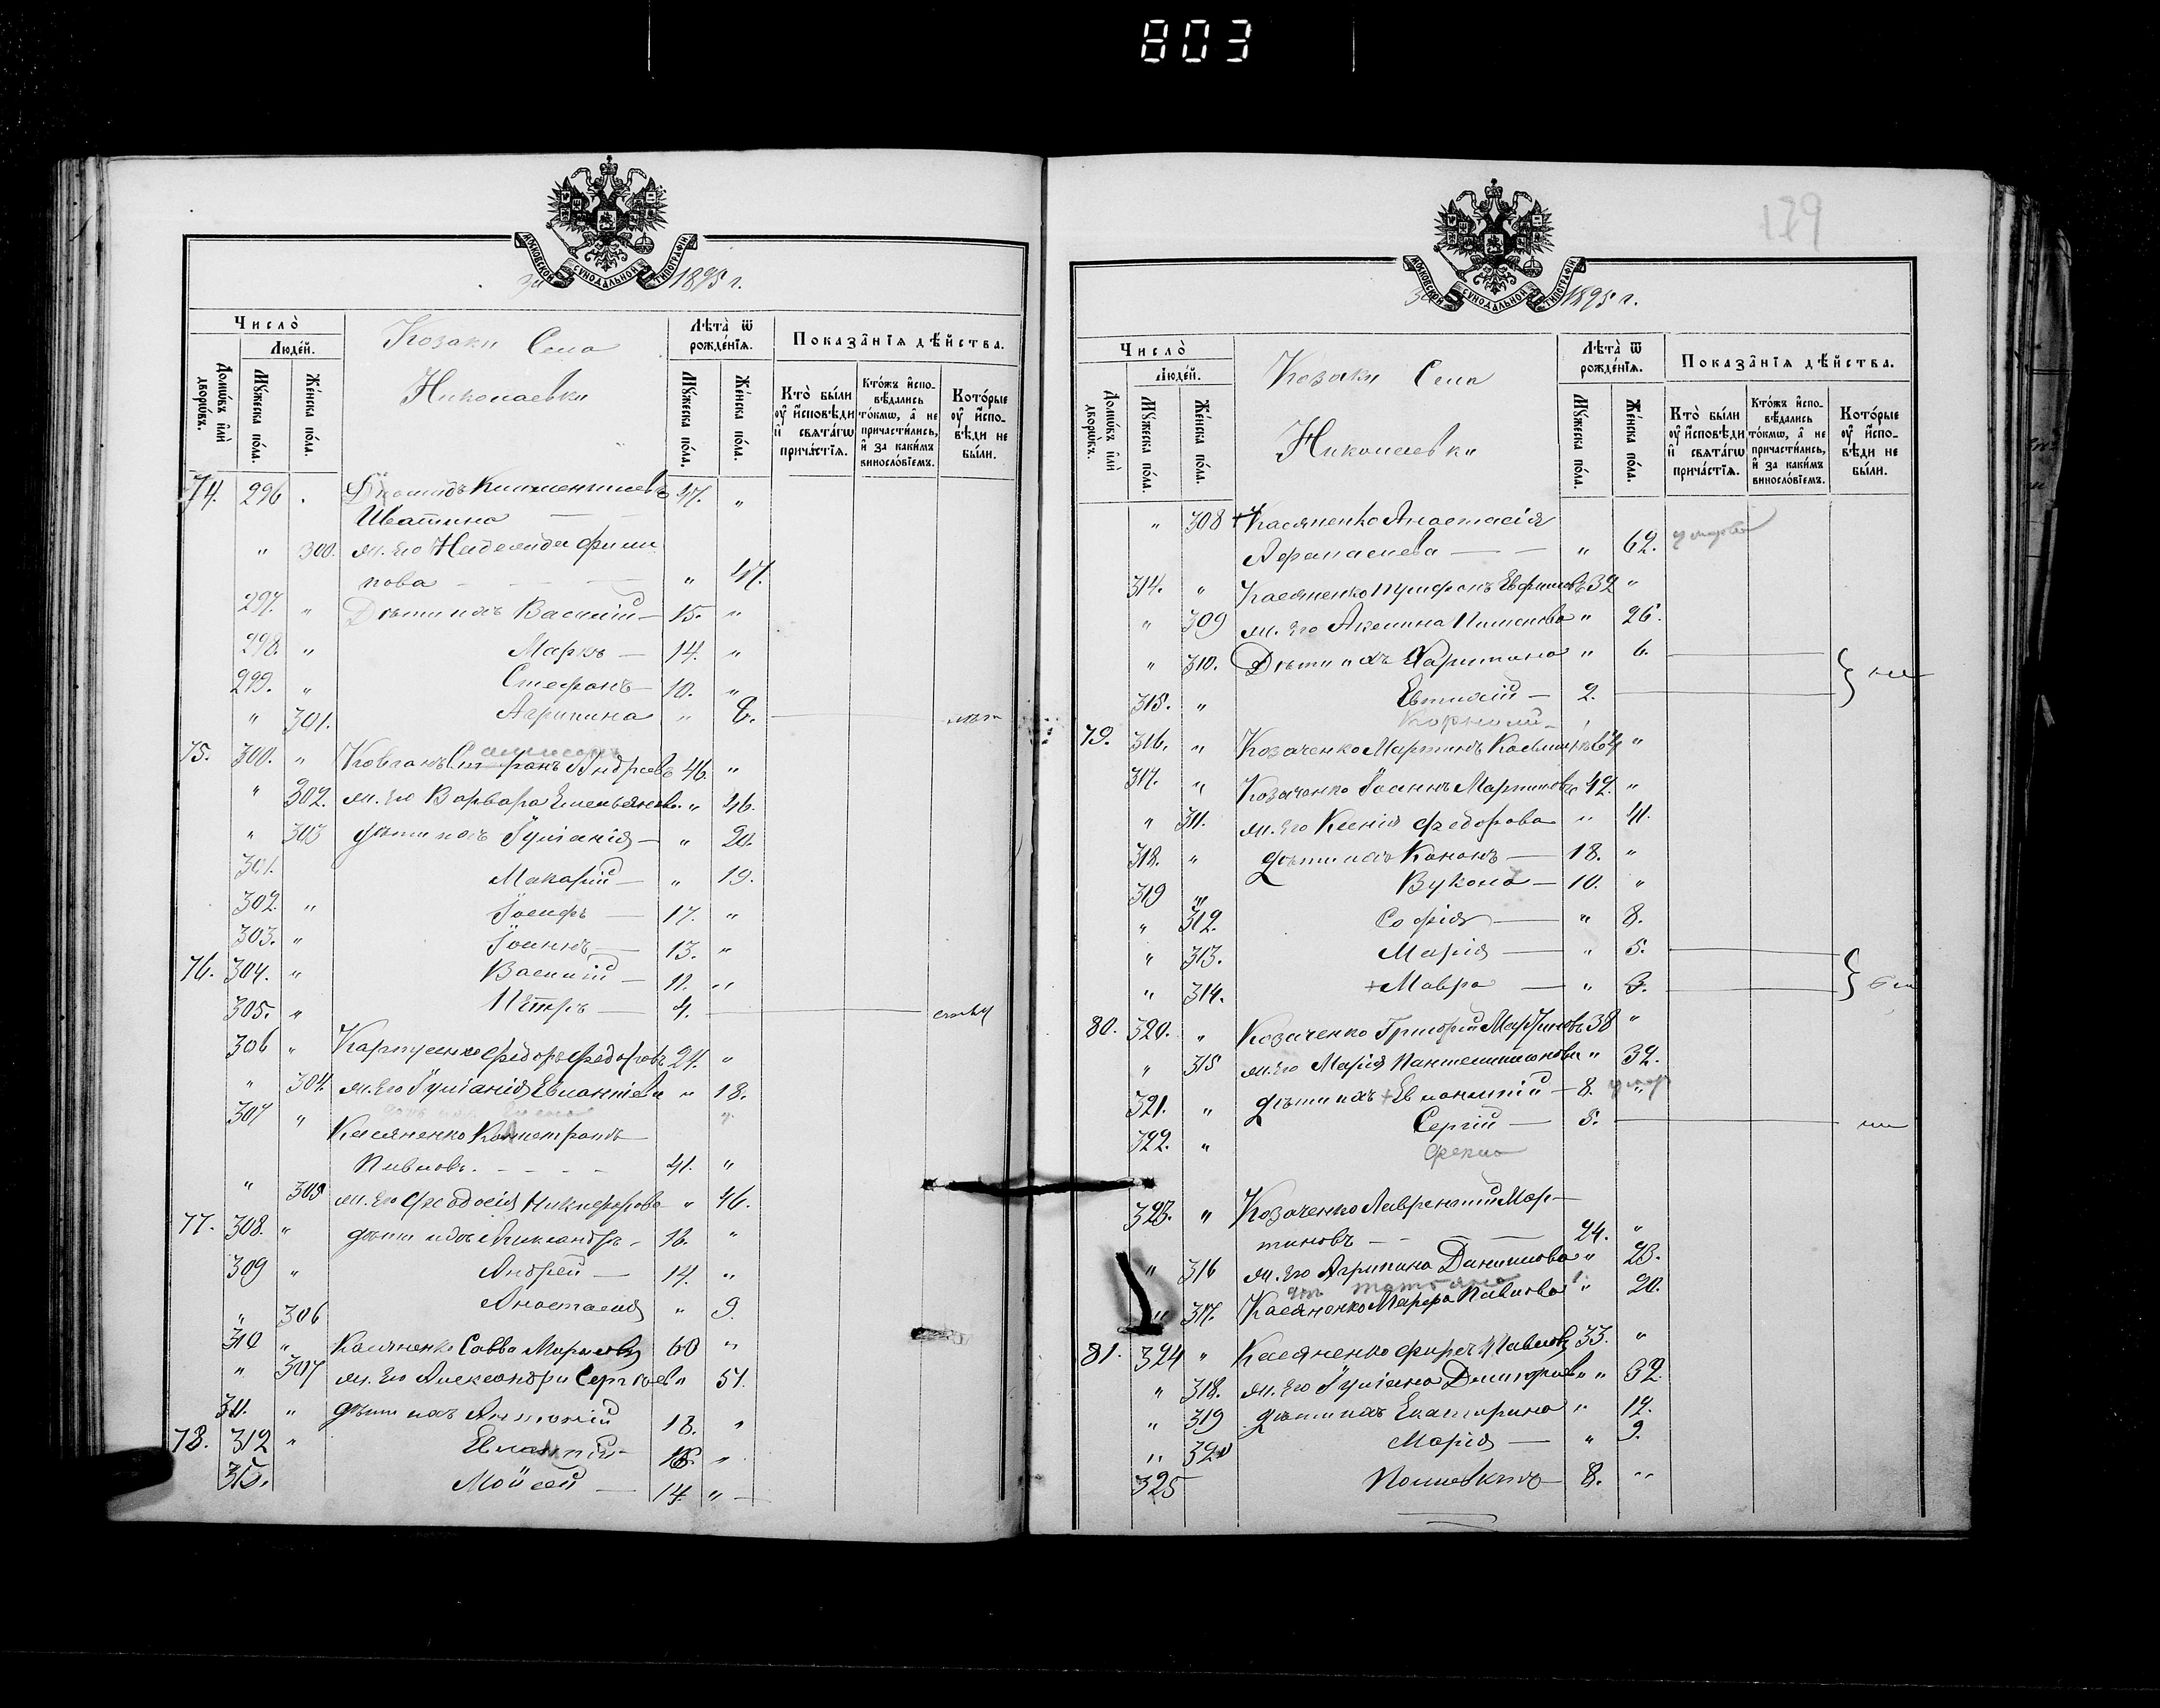 803
МОСКОВСКОЙ СУНОДАЛЬНОЙ ТИПОГРАФІИ
за 1895 г.
Число̀
Людéй.
Домѡ́въ и҆лѝ дворѡ́въ.
Мꙋ́жеска по́ла.
Же́нска по́ла.
Козаки Села
Николаевки
Лѣта̀ ѿ рожде́нїѧ.
Мꙋ́жеска по́ла.
Же́нска по́ла.
Показа̑нїѧ дѣ́йства.
Кто̀ бы́ли оу҆ и҆́сповѣди и҆ свѧта́гѡ прича́стїѧ.
Кто́жъ и҆спо-вѣ́дались то́кмѡ, а҆ не причасти́лись, и҆ за каки́мъ виносло́вїемъ.
Кото́рые оу҆ и҆́спо-вѣди не бы́ли.
74. 296 . Климентиевъ 47. "
Ивашина
" 300. ж. его Надежда Филип
пова " 47.
297. " Дѣти ихъ Василій 15. "
298. " Маркъ 14. "
299. " Стефанъ 10. "
" 301. Агрипина " 8.
75. 300. " Ковганъ Андреевъ 46. "
" 302. ж. его Варвара Емельянова " 46.
" 303 дѣти ихъ Іуліанія " 20.
301. Макарій " 19.
302. " Іосифъ 17. "
303. " Іоаннъ 13. "
76. 304. " Василій 11. "
305. " Петръ 4.
306 " Карпусенко Федоръ Федоровъ 24. "
" 304. ж. его Іуліанія Евлампіева " 18.
307 " Касяненко
Павловъ. 41. "
" 305 ж. его Феодосія Никифорова " 46.
77. 308. " дѣти ихъ Александръ 16. "
309 " Андрей 14. "
" 306 Анастасія " 9.
310 " Касяненко Савва Марковъ 60 "
" 307 ж. его Александра Сергѣева " 51.
311. " дѣти ихъ Антоній 18. "
78. 312 " Евлампій 16. "
313. Мойсей 14. "
179
МОСКОВСКОЙ СУНОДАЛЬНОЙ ТИПОГРАФІИ
за 1895 г.
Число̀
Людéй.
Домѡ́въ и҆лѝ дворѡ́въ.
Мꙋ́жеска по́ла.
Же́нска по́ла.
Козаки Села
Николаевки
Лѣта̀ ѿ рожде́нїѧ.
Мꙋ́жеска по́ла.
Же́нска по́ла.
Показа̑нїѧ дѣ́йства.
Кто̀ бы́ли оу҆ и҆́сповѣди и҆ свѧта́гѡ прича́стїѧ.
Кто́жъ и҆спо-вѣ́дались то́кмѡ, а҆ не причасти́лись, и҆ за каки́мъ виносло́вїемъ.
Кото́рые оу҆ и҆́спо-вѣди не бы́ли.
" 308 + Касяненко Анастасія
Афанасиева " 62. умерла
314. " Касяненко Ефимовъ 32 "
" 309 ж. его Акелина Пименова " 26.
" 310. Дѣти ихъ Харитина " 6.
315. " Евтихій 2.
Корнилій
79. 316. " Козаченко Мартинъ "
317. " Козаченко Іоаннъ Мартиновъ 42. "
" 311. ж. его Ксенія Федорова " 41.
318. " дѣти ихъ Кононъ 18. "
319 " Вукола 10. "
" 312. Софія " 8.
" 313. Марія " 5.
" 314. + Мавра " 3.
80. 320. " Козаченко Григорій Мартиновъ 38 "
" 315 ж. его Марія Пантелеимонова " 32.
321. " дѣти ихъ + Евлампій 8. умер
322. " Сергій 5.
Фекла
323. " Козаченко Лаврентій Мар-
тиновъ 24. "
" 316 ж. его Агрипина Данилова " 23.
Татьяна
" 317. Касяненко Марфа Павлова " 20.
81. 324 " Касяненко Павловъ 33. "
" 318. ж. его Іуліана " 32.
" 319 дѣти ихъ Екатерина " 12.
" 320 Марія " 9.
325 Поліевктъ 8. "